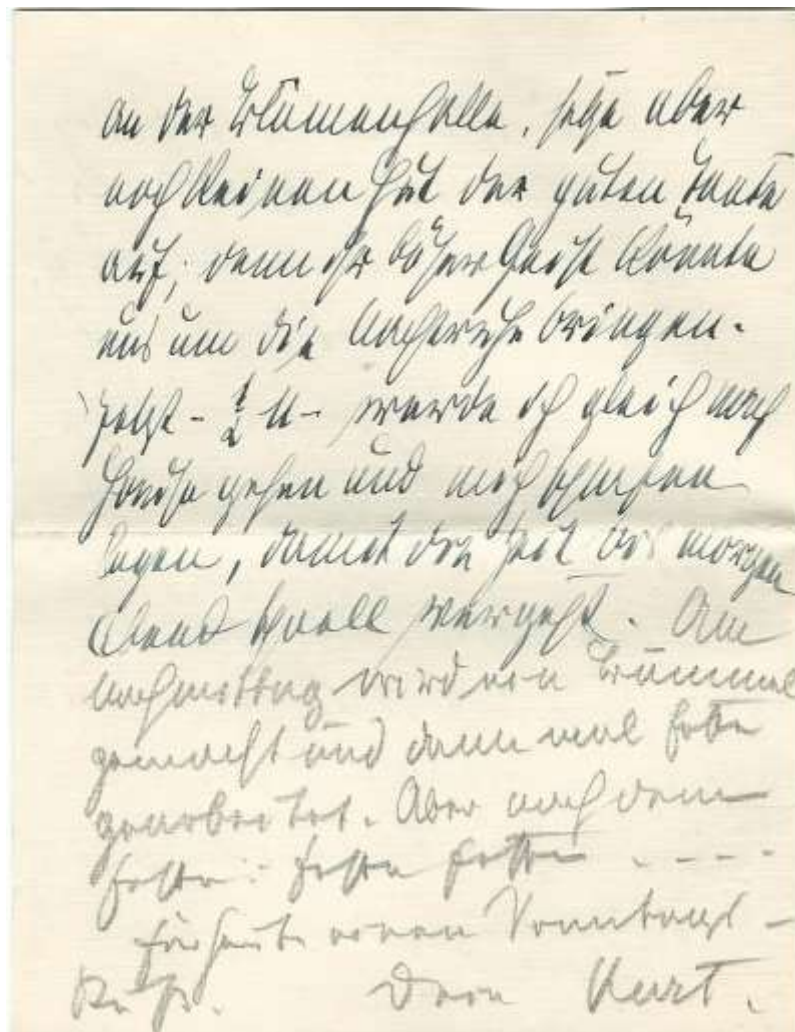 an der Blumenhalle, setze aber
noch keinen Hut der guten Tante
auf; denn ihr böser Geist könnte
uns um die Nachtruhe bringen.
Jetzt - ½ 11 - werde ich gleich nach
Hause gehen und mich schlafen
legen, damit die Zeit bis morgen
Abend schnell vergeht. Am
Nachmittag wird ein Bummel
gemacht und dann mal feste
gearbeitet. Aber nach dem
feste: feste feste - - - -
Für heute einen Sonntags-
Kuß. Dein Kurt.